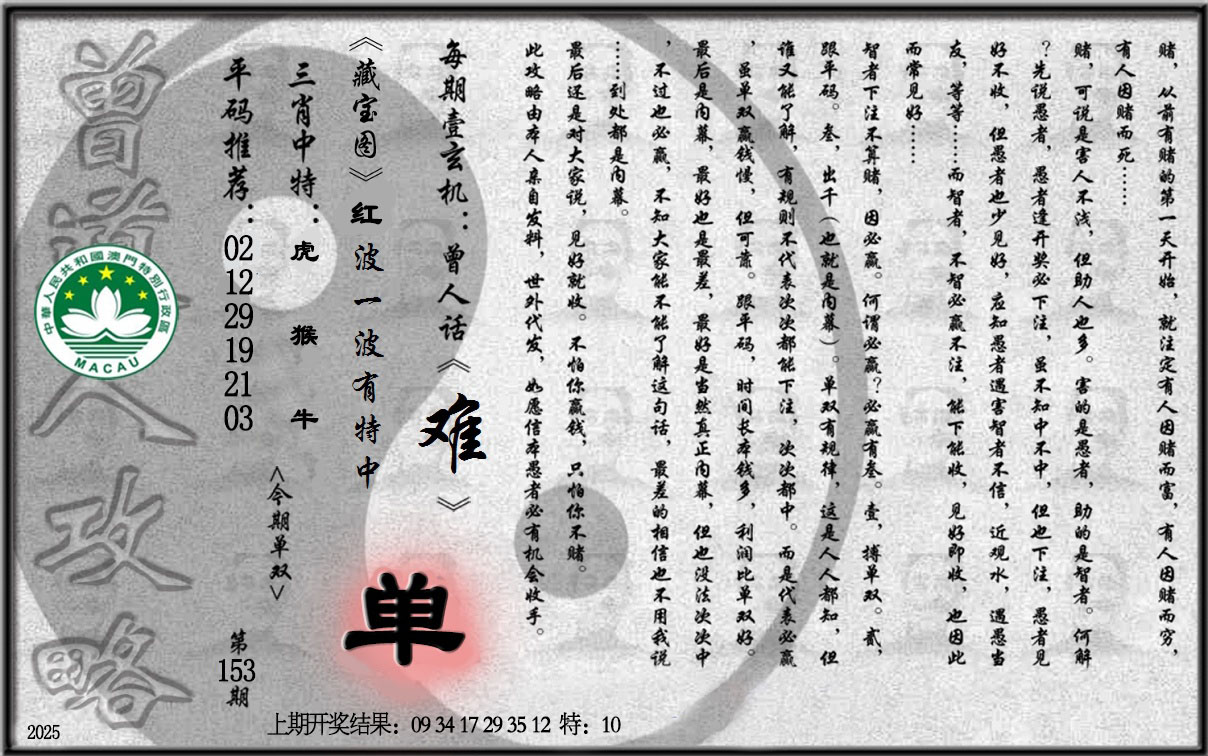 赌，从前有赌的第一天开始，就注定有人因赌而富，有人因赌而穷，
有人因赌而死……
赌，可说是害人不浅，但助人也多。害的是愚者，助的是智者。何解
？先说愚者，愚者逢开奖必下注，虽不知中不中，但也下注，愚者见
好不收，但愚者也少见好，应知愚者遇害智者不信，近观水，遇愚当
友，等等……而智者，不智必赢不注，能下能收，见好即收，也因此
而常见好……
智者下注不算赌，因必赢。何谓必赢？必赢有叁。壹，搏单双。贰，
跟平码。叁，出千（也就是内幕）。单双有规律，这是人人都知，但
谁又能了解，有规则不代表次次都能下注，次次都中。而是代表必赢
，虽单双赢钱慢，但可靠。跟平码，时间长本钱多，利润比单双好。
最后是内幕，最好也是最差，最好是当然真正内幕，但也没法次次中
，不过也必赢，不知大家能不能了解这句话，最差的相信也不用我说
……到处都是内幕。
最后还是对大家说，见好就收。不怕你赢钱，只怕你不赌。
此攻略由本人亲自发料，世外代发，如愿信本愚者必有机会收手。
每期壹玄机：曾人话《难》
《藏宝图》红波一波有特中
单
三肖中特：虎 猴 牛
<今期单双>
平码推荐：02 12 29 19 21 03
第153期
曾道人攻略
中華人民共和國澳門特別行政區
MACAU
2025
上期开奖结果：09 34 17 29 35 12 特：10